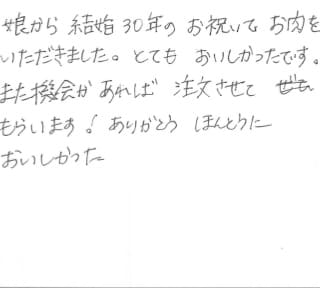 娘から 結婚30年の お祝いで お肉を
いただきました。とても おいしかったです。
また機会があれば 注文させて
もらいます! ありがとう ほんとうに
おいしかった